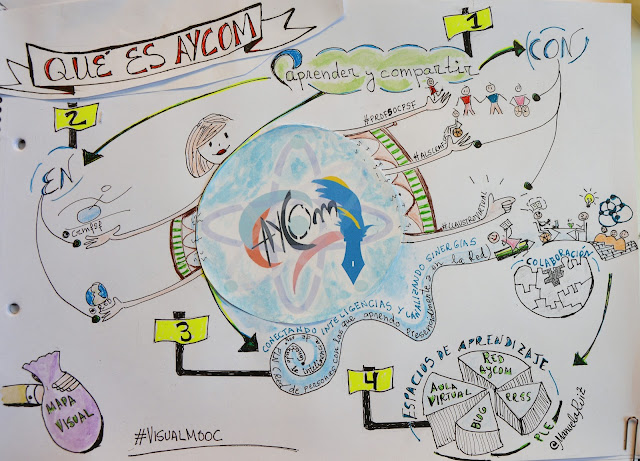 QUÉ ES AYCOM
1
aprender y compartir
CON
2
EN
#PROFSOCPSF
#ALSCEMFF
#CLAUSTROVIRTUAL
cemfsf
AYCom
COLABORACIÓN
3
CONECTANDO INTELIGENCIAS Y CANALIZANDO SINERGIAS
de personas con las que aprendo presencialmente y en la Red
4
ESPACIOS DE APRENDIZAJE
RED
AYCOM
AULA
VIRTUAL
BLOG
RRSS
PLE
MAPA
VISUAL
#VISUALMOOC
@ManuelaRuiz